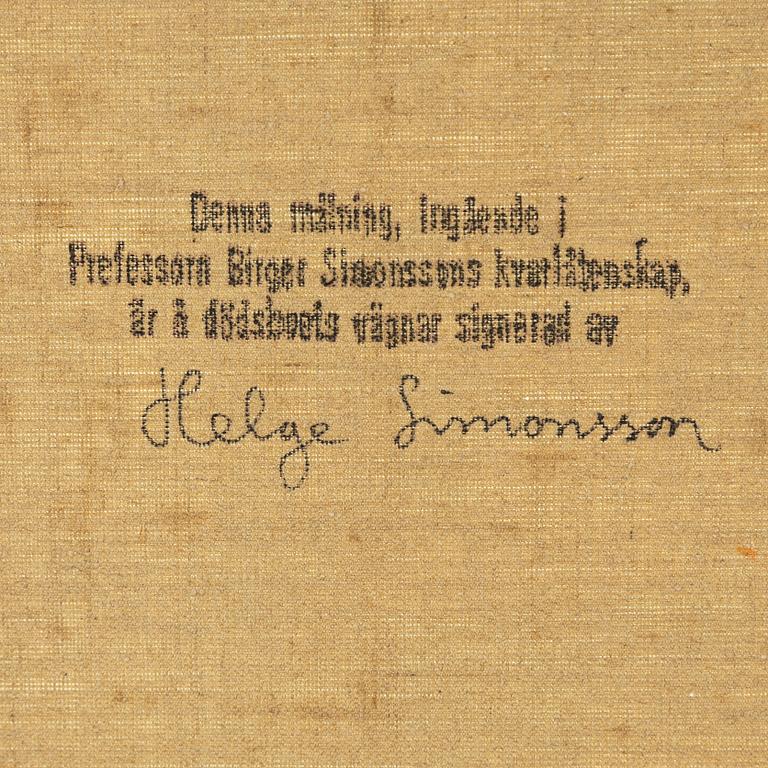 Denna målning, ingående i
Professorn Birger Simonssons kvarlåtenskap,
är å dödsboets vägnar signerad av
Helge Simonsson